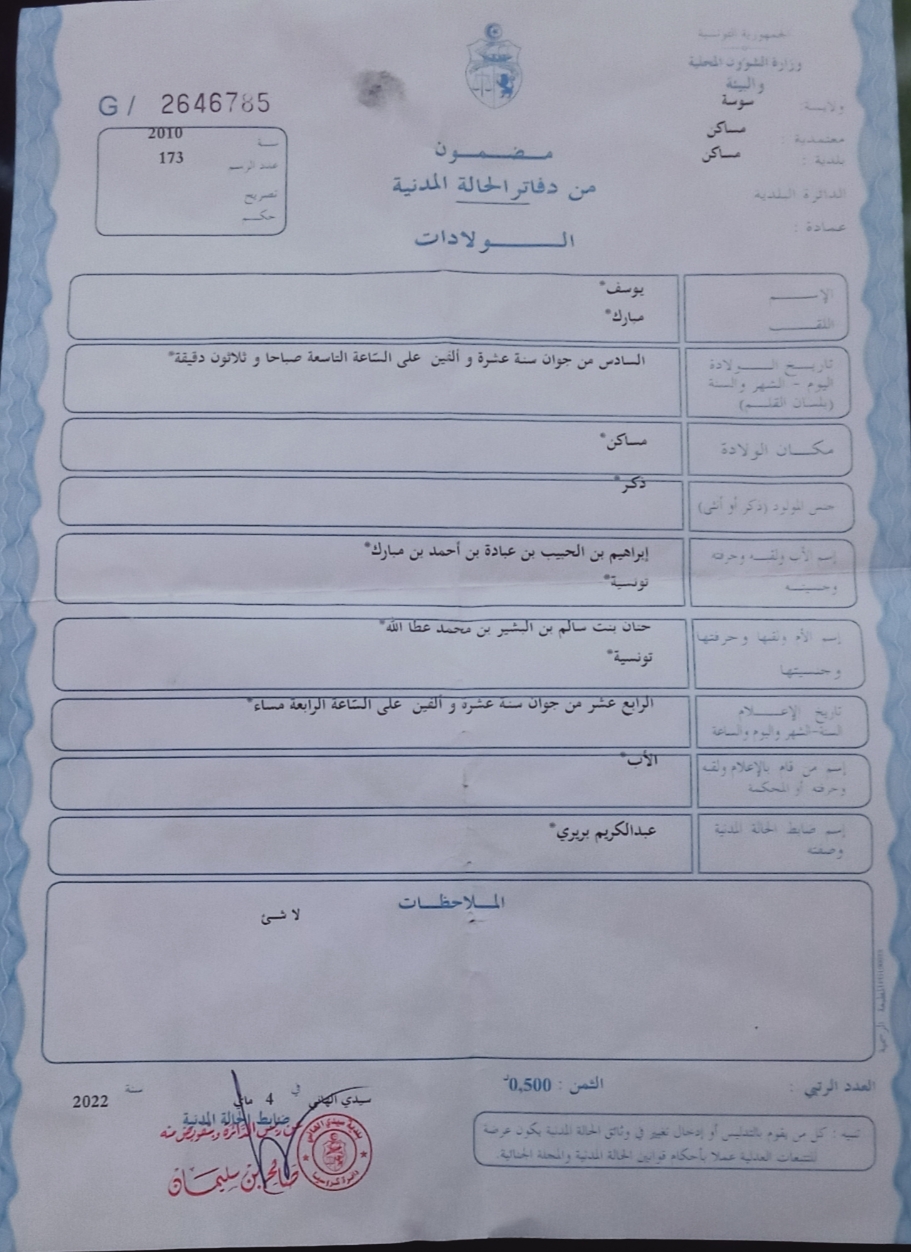 الجمهورية التونسية
وزارة الشؤون المحلية
والبيئة
ولايـة: سوسة
معتمدية : مساكن
بلدية : مساكن
الدائرة البلدية
عمادة :
G / 2646785
سنة 2010
عدد الرسم 173
تصريح
حكم
مضمون
من دفاتر الحالة المدنية
الولادات
الإسم يوسف*
اللقب مبارك*
تاريخ الولادة السادس من جوان سنة عشرة و ألفين على السّاعة التاسعة صباحا و ثلاثون دقيقة*
اليوم - الشهر والسنة
(بلسان القلم)
مكان الولادة مساكن*
جنس المولود (ذكر أو أنثى) ذكر*
إسم الأب ولقبه وحرفته إبراهيم بن الحبيب بن عبادة بن أحمد بن مبارك*
وجنسيته تونسية*
إسم الأم ولقبها وحرفتها حنان بنت سالم بن البشير بن محمد عطا الله*
وجنسيتها تونسية*
تاريخ الإعلام الرابع عشر من جوان سنة عشرة و ألفين على السّاعة الرابعة مساء*
السنة-الشهر واليوم والساعة
إسم من قام بالإعلام ولقبه الأب*
وحرفته أو المحكمة
إسم ضابط الحالة المدنية عبدالكريم بريري*
وصفته
الملاحظات
لا شئ
العدد الرتبي :
الثمن : 0,500د
تنبيه : كل من يقوم بالتدليس أو إدخال تغيير في وثائق الحالة المدنية يكون عرضة
للتتبعات العدلية عملا بأحكام قوانين الحالة المدنية والمجلة الجنائية.
سيدي الهاني في 4 ماي سنة 2022
ضابط الحالة المدنية
عن رئيس الدائرة وبتفويض منه
صالح بن سليمان
بلدية سيدي الهاني